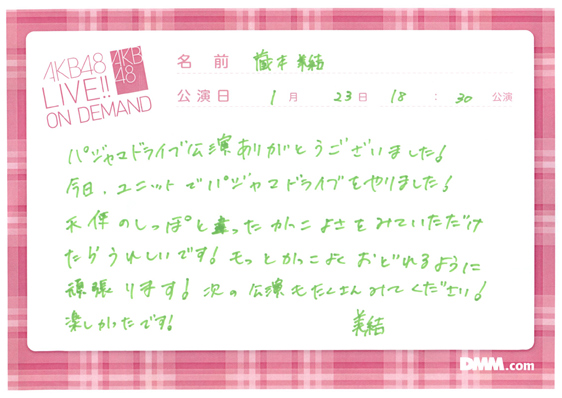 AKB48
LIVE!!
ON DEMAND
AKB
48
名前 蔵本美結
公演日 1月 23日 18 : 30 公演
パジャマドライブ公演ありがとうございました!
今日、ユニットでパジャマドライブをやりました!
天使のしっぽと違ったかっこよさをみていただけ
たらうれしいです!もっとかっこよくおどれるように
頑張ります!次の公演もたくさんみてください!
楽しかったです!
美結
DMM.com